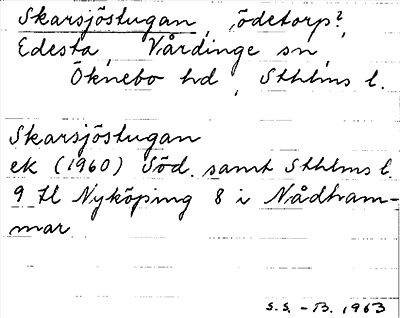 Skarsjöstugan, ödetorp?,
Edesta, Vårdinge sn,
Öknebo hd, Sthlms l.
Skarsjöstugan
ek (1960) Söd. samt Sthlms l.
9 H Nyköping 8 i Nådham-
mar
S.S. - B. 1963